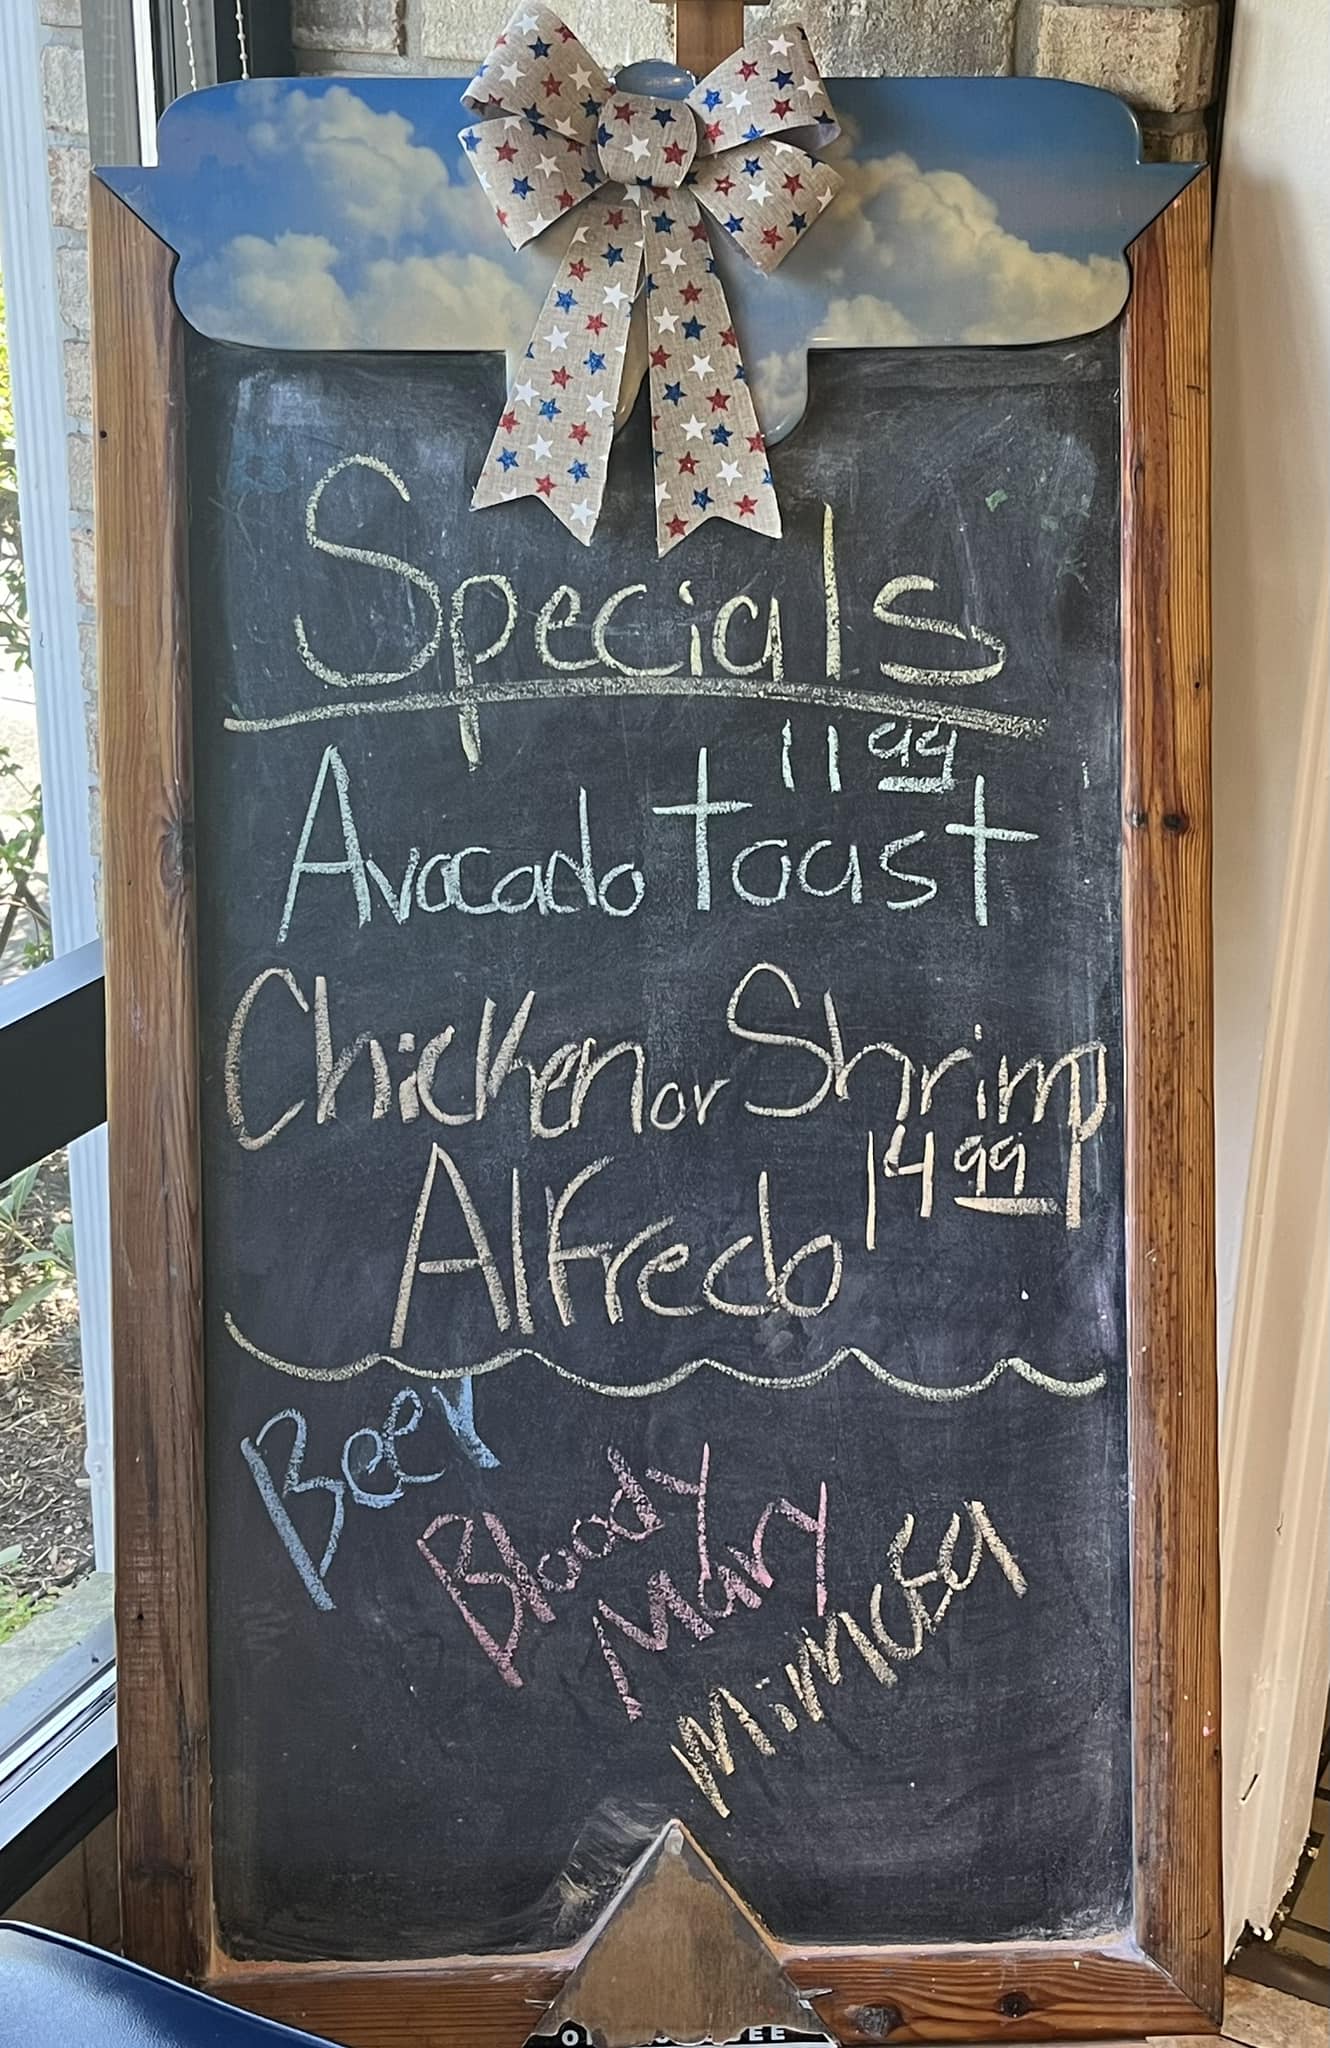 Specials
11 99
Avocado Toast
Chicken or Shrimp
14 99
Alfredo
Beer
Bloody
Mary
Mimosa